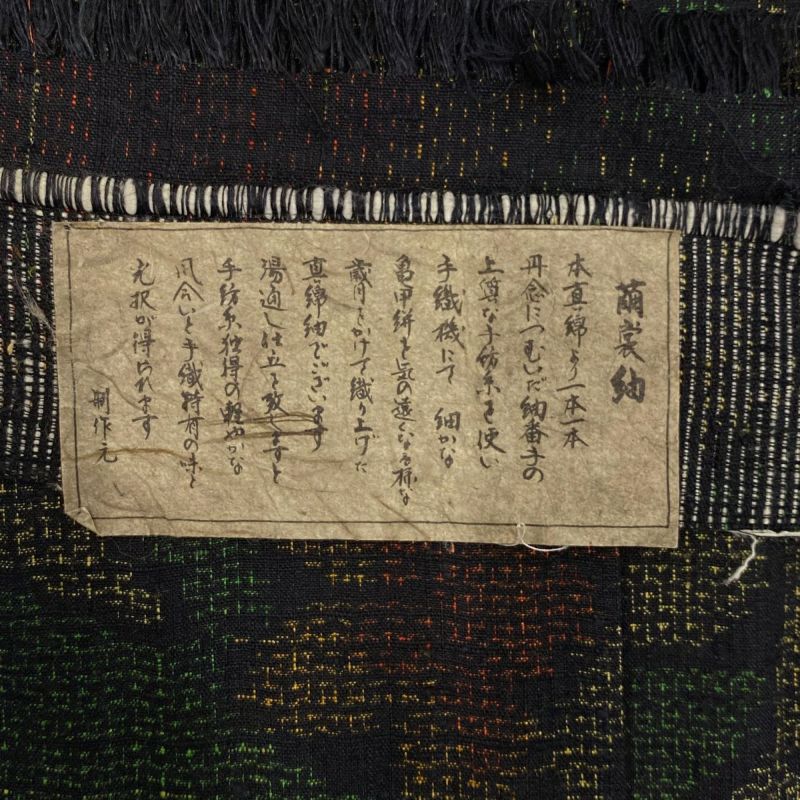 繭裳紬
本真綿より一本一本
丹念につむいだ細番手の
上質な手紡糸を使い
手織機にて 細かな
亀甲絣を気の遠くなる様な
歳月をかけて織り上げた
真綿紬でございます
湯通し仕立て致しますと
手紡糸独得の軽やかな
風合いと手織特有の味と
光沢が得られます
制作元